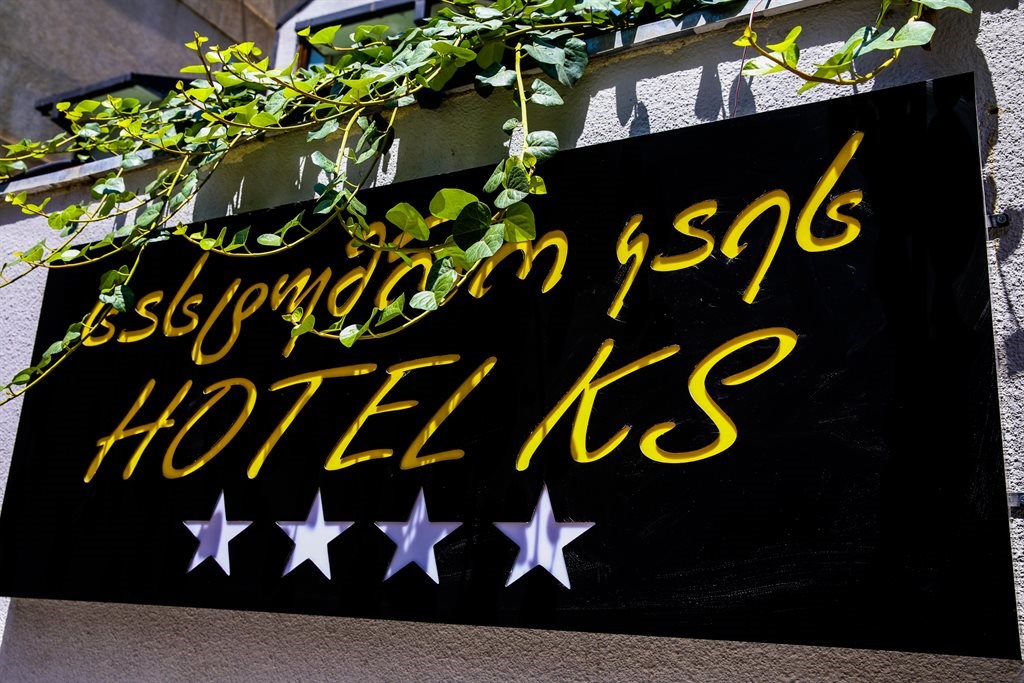 სასტუმრო კაეს
HOTEL KS